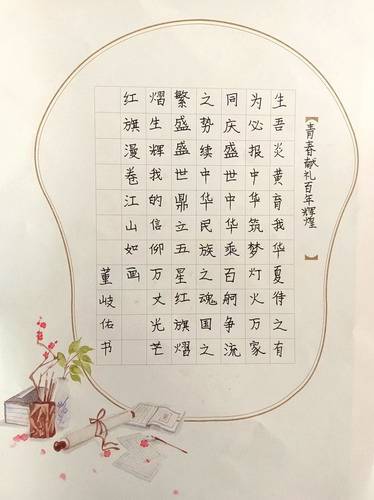 【青春献礼百年辉煌】
生吾炎黄育我华夏待之有
为必报中华筑梦灯火万家
同庆盛世中华乘百舸争流
之势续中华民族之魂国之
繁盛盛世鼎立五星红旗熠
熠生辉我的信仰万丈光芒
红旗漫卷江山如画
董岐佑书